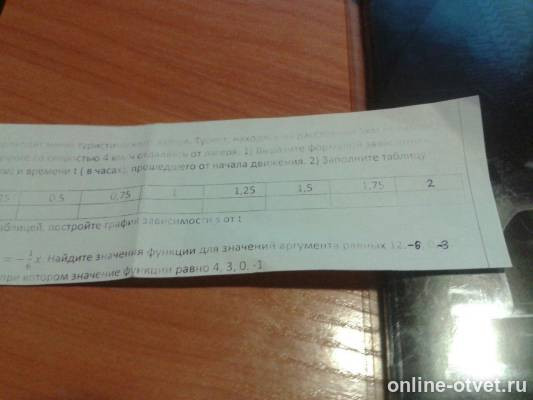 туристический лагерь. Турист, находясь на расстоянии
со скоростью 4 км/ч от лагеря. 1) Выразите формулой зависимость
и времени t ( в часах), прошедшего от начала движения. 2) Заполните таблицу
25 0,5 0,75 1 1,25 1,5 1,75 2
таблицей, постройте график зависимости s от t
= -1/6 x. Найдите значения функции для значений аргумента равных 12, -6, 0, -3
при котором значение функции равно 4, 3, 0, -1
online-otvet.ru